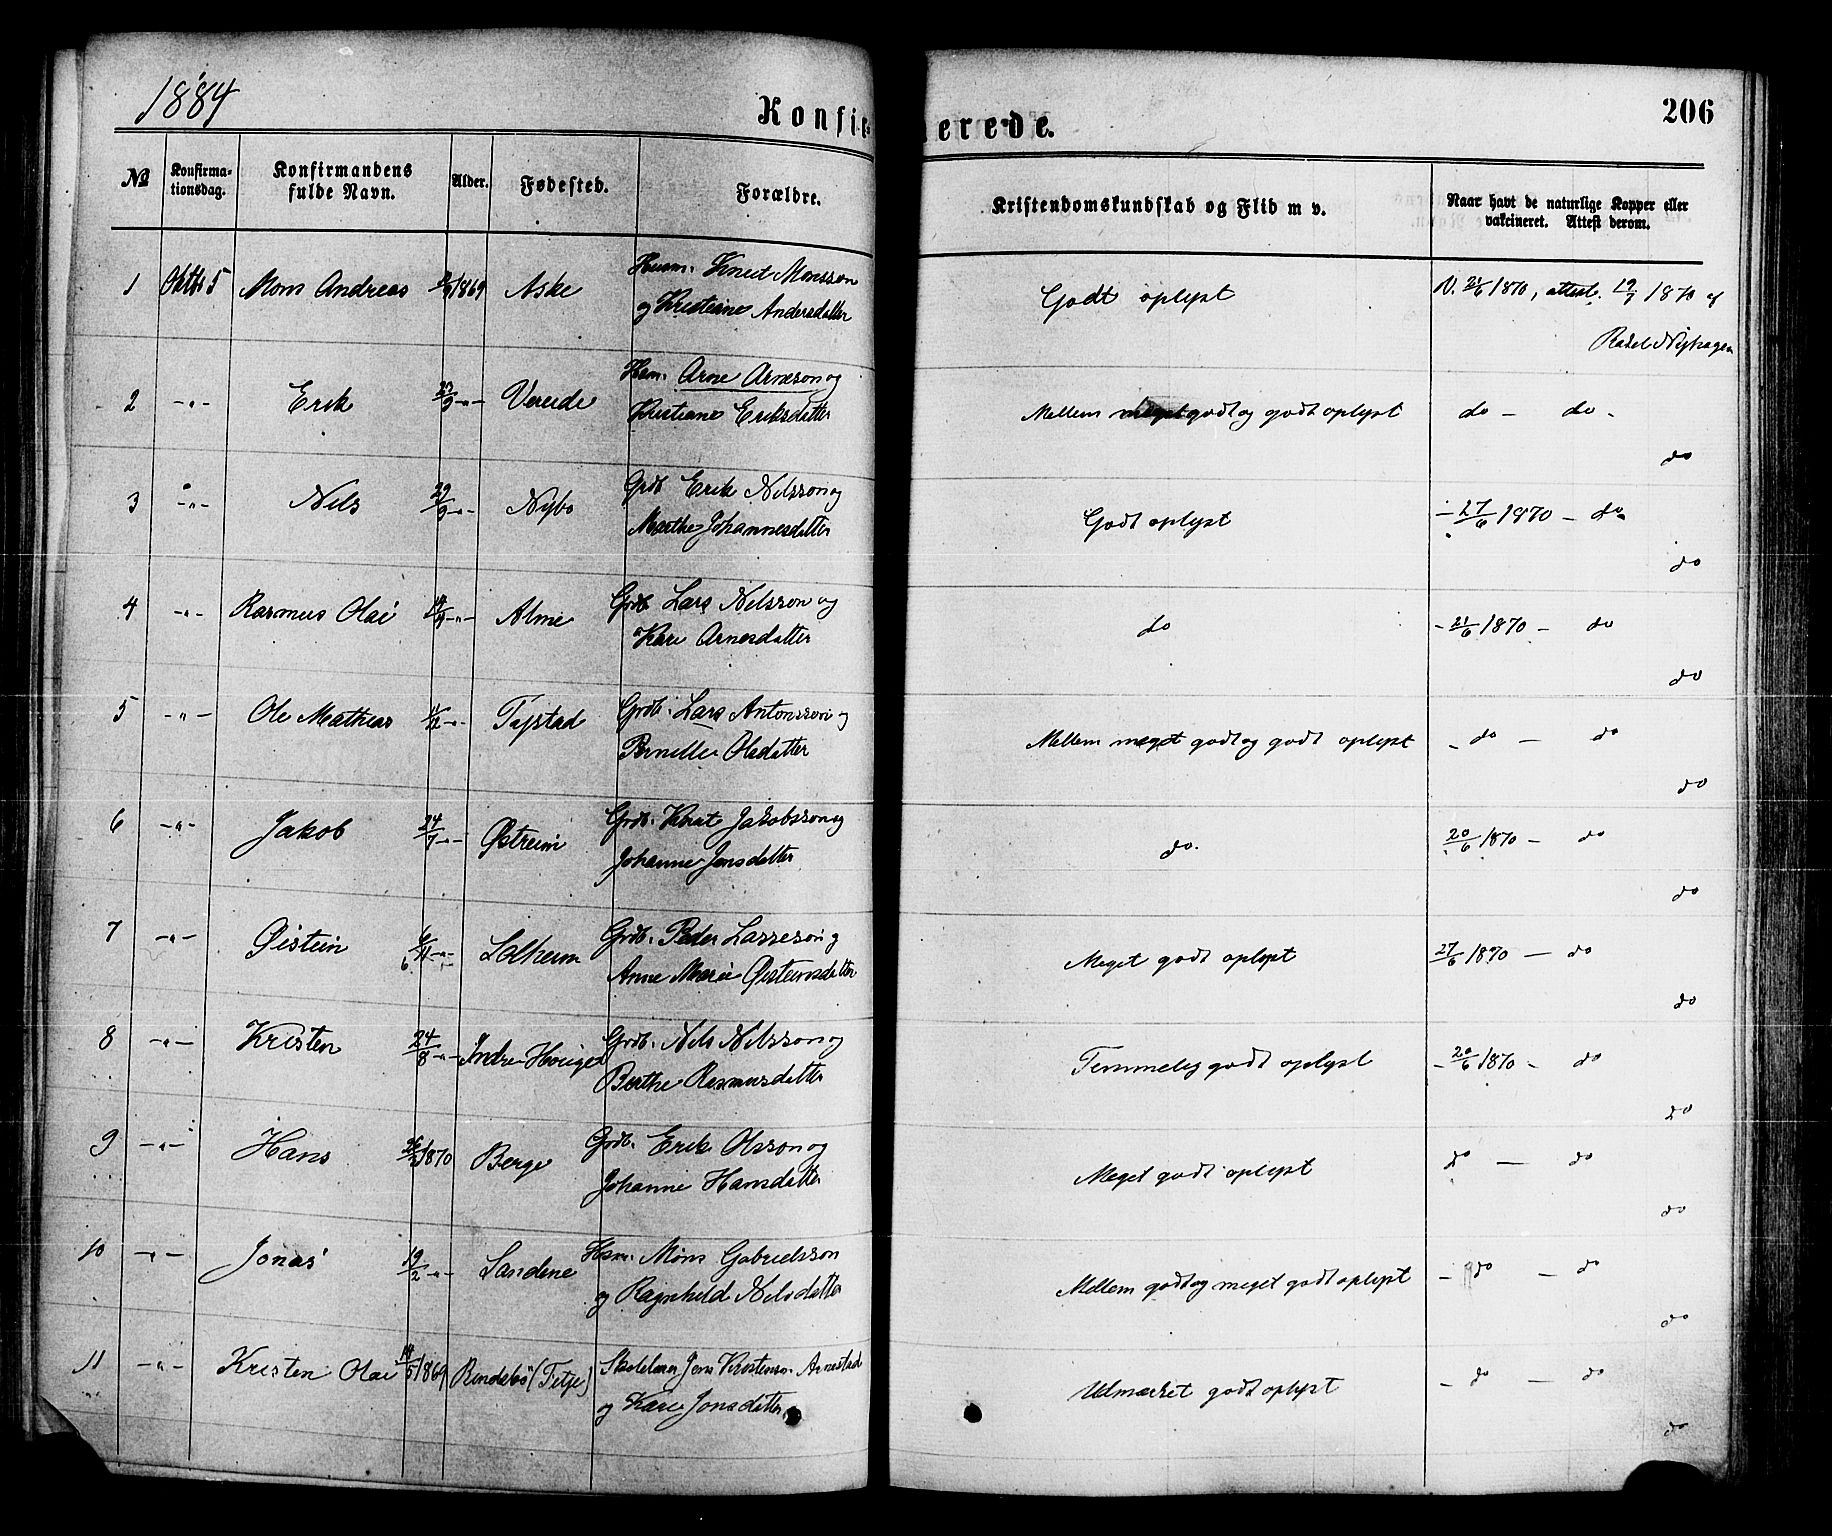 1884
Konfir- merede.
206
No
Konfirma-
tionsdag.
Konfirmandens
fulde Navn.
Alder.
Fødested.
Forældre.
Kristendomskundskab og Flid m v.
Naar havt de naturlige Kopper eller
vakcineret. Attest derom.
1 Oktbr 5 Mons Andreas 1869 Aske Husm. Knut Monsson Godt oplyst V. 21/6 1870, attest. 19/7 1870 af
og Kristiane Andersdatter
Rakel Nyhagen
2 -"- Erik 23/9 -"- Vereide Hsm. Arne Arneson og Mellem meget godt og godt oplyst do - do -
Kristiane Eriksdatter
do
3 -"- Nels 29/9 -"- Nybø Grdb. Erik Nelsson og Godt oplyst - 27/6 1870 - do
Marthe Johannesdatter
do
4 -"- Rasmus Olai -"- Alme Grdb. Lars Nelsson og do - 21/6 1870 - do
Kari Arnesdatter
do
5 -"- Ole Mathias -"- Tystad Grdb. Lars Antonsson og Mellem meget godt og godt oplyst - do - do
Pernille Olsdatter
do
6 -"- Jakob 24/7 -"- Østreim Grdb. Knut Jakobsson og do. 20/6 1870 - do
Johanne Jonsdatter
do
7 -"- Øistein 6/11 -"- Solheim Grdb. Peder Lassesson og Meget godt oplyst 27/6 1870 - do
Anne Marie Øisteinsdatter
do
8 -"- Kristen 24/8 -"- Indre Hauger Grdb. Nils Nilsson og Temmelig godt oplyst - 20/6 1870 - do
Berthe Rasmusdatter
do
9 -"- Hans 1870 Berge Grdb. Erik Olsson og Meget godt oplyst do - do
Johanne Hansdatter
do
10 -"- Jonas 19/2 -"- Sandene Hsm. Mons Gabrielsson Mellem godt og meget godt oplyst - do - do
og Ragnhild Nilsdatter
do
11 -"- Kristen Olai 14/5 1869 Rindebø (Fitje) Skolelærer Jens Kristenss. Arnestad Udmærket godt oplyst - do - do
og Kari Jonsdatter
do